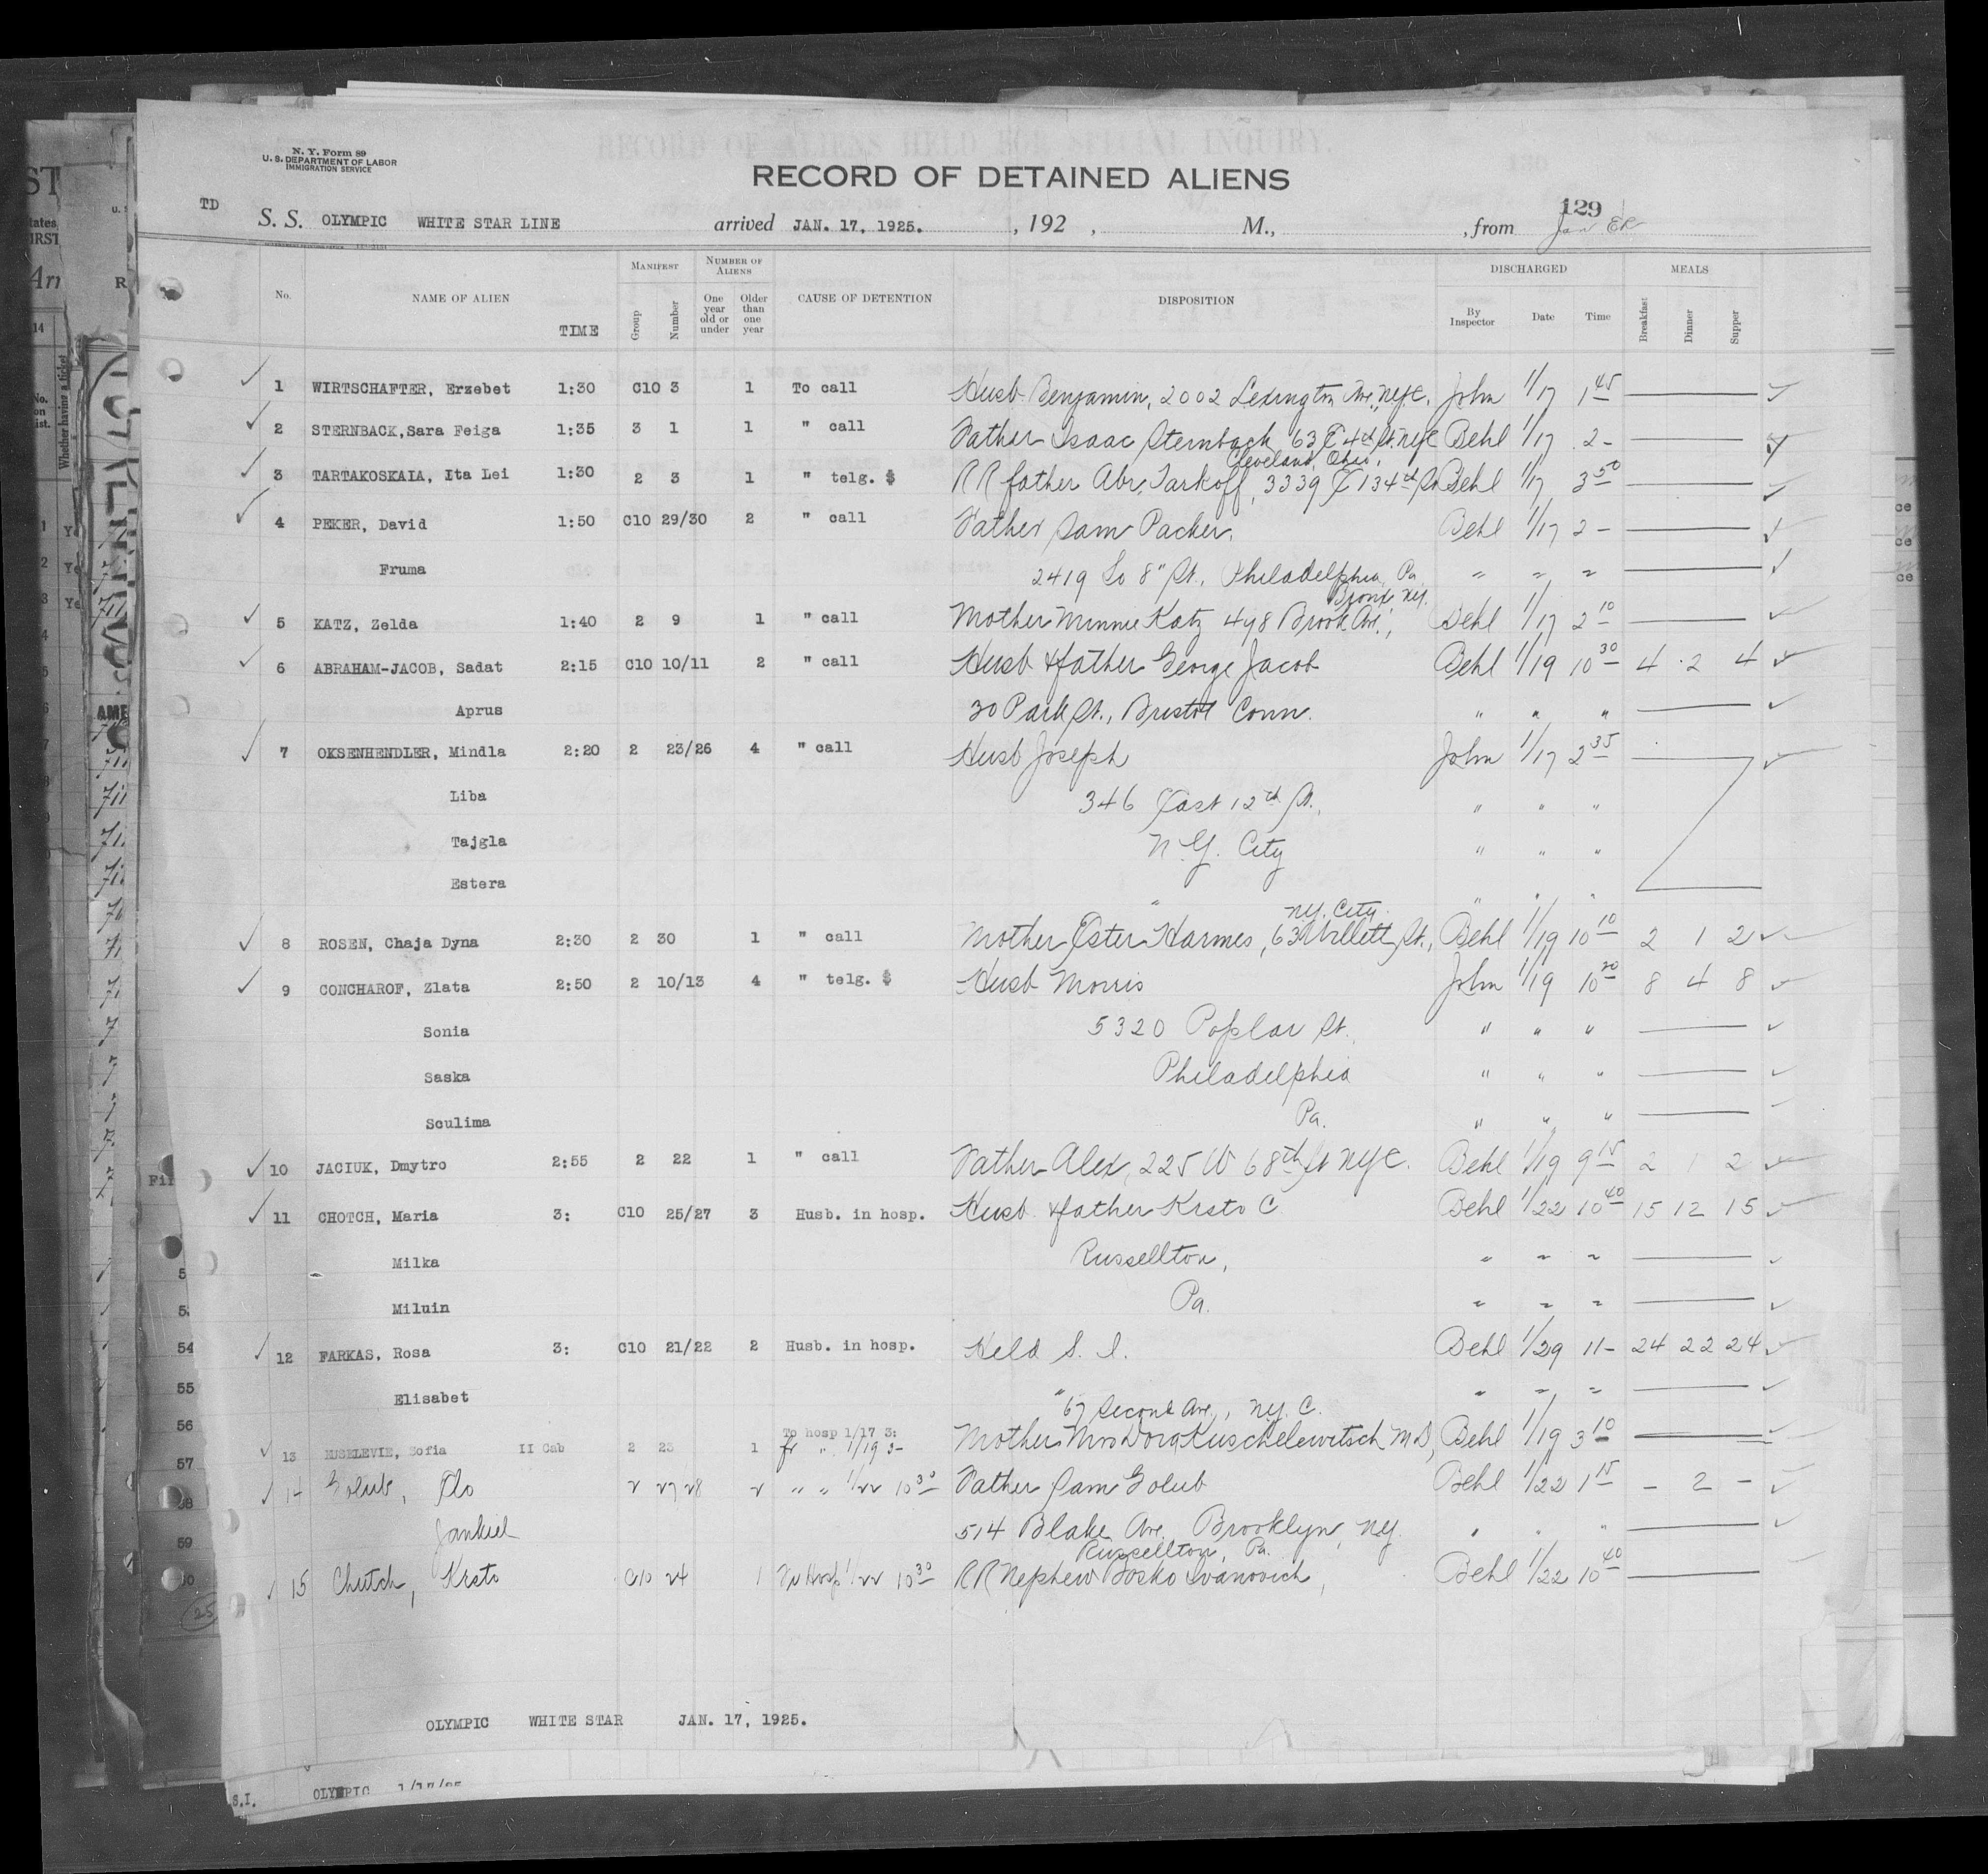 N. Y. Form 89
U. S. DEPARTMENT OF LABOR
IMMIGRATION SERVICE
RECORD OF ALIENS HELD FOR SPECIAL INQUIRY.
RECORD OF DETAINED ALIENS
129
TD S. S. OLYMPIC WHITE STAR LINE arrived JAN. 17, 1925. , 192 , M., , from
No. NAME OF ALIEN TIME MANIFEST Group Number NUMBER OF ALIENS One year old or under Older than one year CAUSE OF DETENTION DISPOSITION DISCHARGED By Inspector Date Time MEALS Breakfast Dinner Supper
1 WIRTSCHAFTER, Erzebet 1:30 C10 3 1 To call Husb Benjamin, 2002 Lexington Ave., NYC. John 1/17 1 45
2 STERNBACK, Sara Feiga 1:35 3 1 1 " call Father Isaac Sternback 63 E 4th St. NYC Behl 1/17 2-
Cleveland, Ohio,
3 TARTAKOSKAIA, Ita Lei 1:30 2 3 1 " telg. $ RR father Abr. Tarkoff, 3339 E 134th St Behl 1/17 3 50
4 PEKER, David 1:50 C10 29/30 2 " call Father Sam Packer, Behl 1/17 2-
Fruma 2419 So 8" St., Philadelphia, Pa. " " "
Bronx NY.
5 KATZ, Zelda 1:40 2 9 1 " call Mother Minnie Katz 498 Brook Ave., Behl 1/17 2 10
6 ABRAHAM-JACOB, Sadat 2:15 C10 10/11 2 " call Husb & father George Jacob Behl 1/19 10 30 4 2 4
Aprus 30 Park St., Bristol Conn. " " "
7 OKSENHENDLER, Mindla 2:20 2 23/26 4 " call Husb Joseph John 1/17 2 35
Liba 346 East 12th St., " " "
Tajgla N.Y. City " " "
Estera " " "
N.Y. City
8 ROSEN, Chaja Dyna 2:30 2 30 1 " call Mother Ester Harmes, 63 Willett St., Behl 1/19 10 10 2 1 2
9 CONCHAROF, Zlata 2:50 2 10/13 4 " telg. $ Husb Morris John 1/19 10 20 8 4 8
Sonia 5320 Poplar St. " " "
Saska Philadelphia " " "
Sculima Pa. " " "
10 JACIUK, Dmytro 2:55 2 22 1 " call Father Alex, 225 W 68th St NYC. Behl 1/19 9 15 2 1 2
11 CHOTCH, Maria 3: C10 25/27 3 Husb. in hosp. Husb & father Krsto C. Behl 1/22 10 40 15 12 15
Milka Russellton, " " "
Miluin Pa. " " "
12 FARKAS, Rosa 3: C10 21/22 2 Husb. in hosp. Held S. I. Behl 1/29 11- 24 22 24
Elisabet " " " "
67 Second Ave., N.Y. C.
To hosp 1/17 3:
13 Sofia II Cab 2 23 1 fr " 1/19 3- Mother Mrs Dora Kuschelewitsch M D, Behl 1/19 3 10
14 Golub, Flo 2 27 28 2 " " 1/22 10 30 Father Sam Golub Behl 1/22 1 15 - 2 -
Jankiel 514 Blake Ave, Brooklyn, NY. " " "
Russellton, Pa.
15 Chutch, Krsto C10 24 1 Fr Hosp 1/22 10 30 RR Nephew Bosko Ivanovich, Behl 1/22 10 40
OLYMPIC WHITE STAR JAN. 17, 1925.
S.I. OLYMPIC 1/17/25